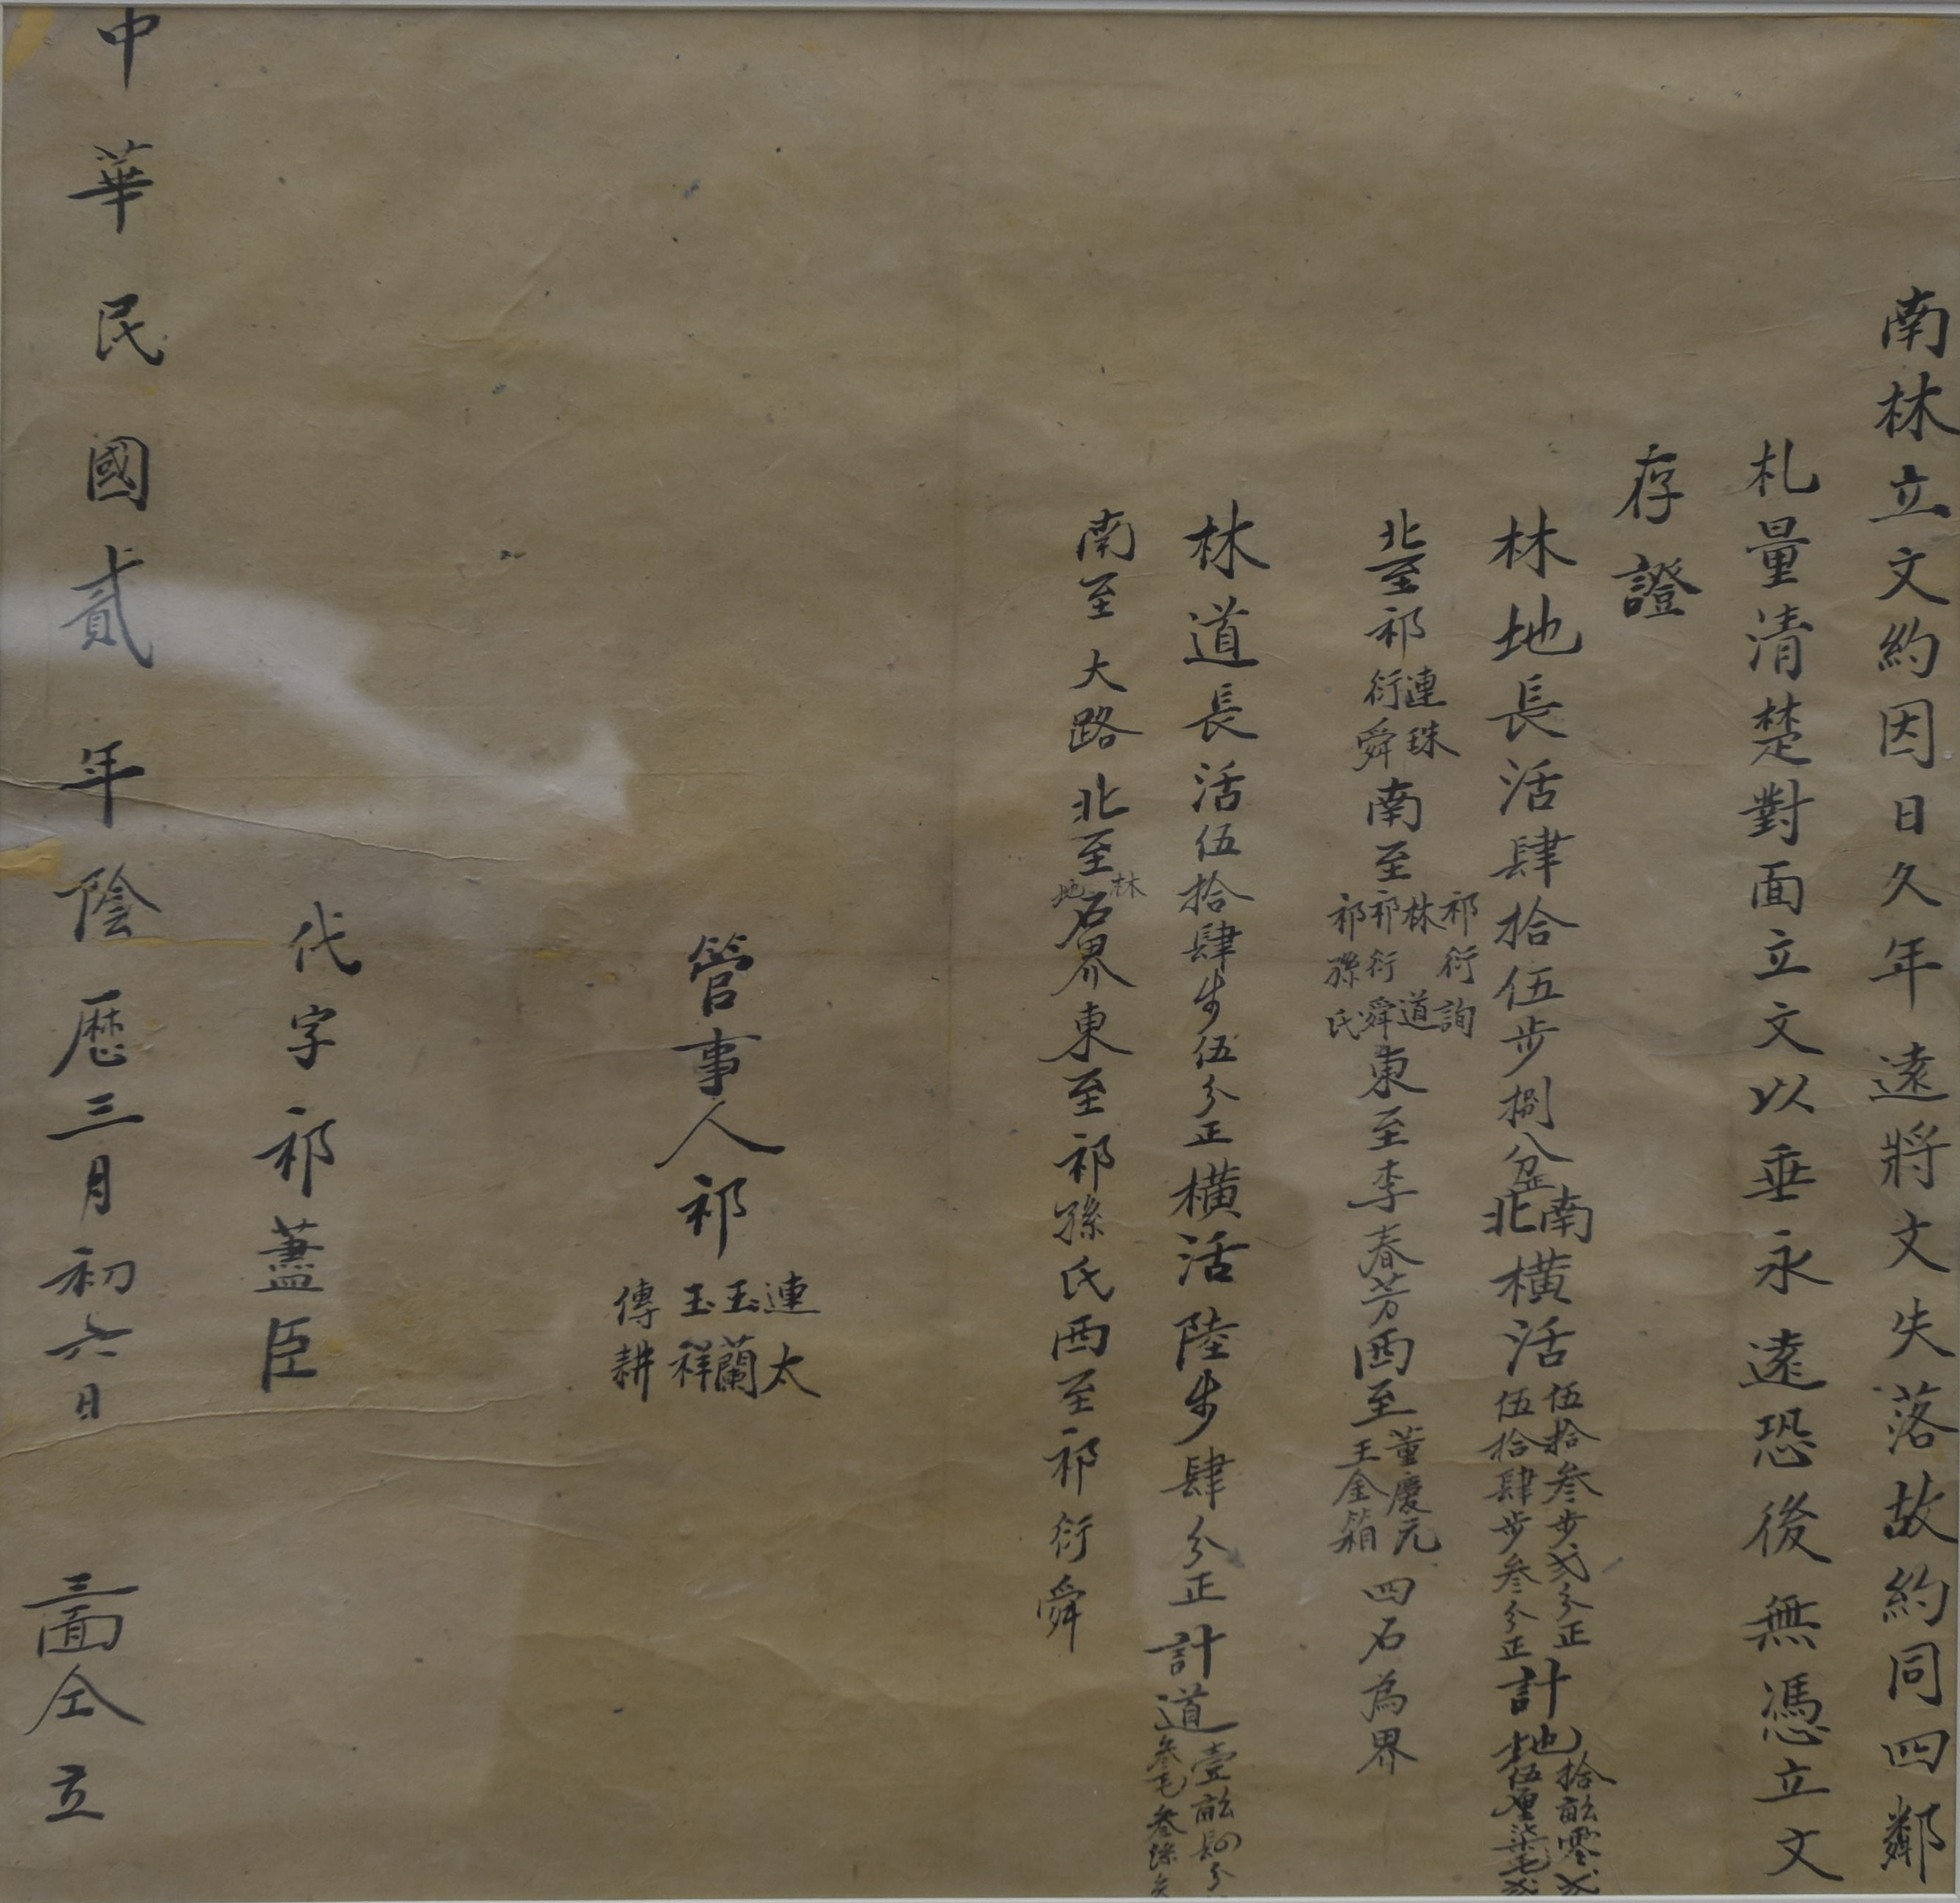 南林立文約因日久年遠將文失落故約同四鄰
札量清楚對面立文以垂永遠恐後無憑立文
存證
林地長活肆拾伍步捌分正
南
北
橫活
伍拾叁步弍分正
伍拾肆步叁分正
計地
拾畝零弍
伍厘柒毛弍
北至祁
連珠
衍舜
南至
祁衍詢
林道
祁衍舜
祁孫氏
東至李春芳西至
董慶元
王金箱
四石為界
林道長活伍拾肆步伍分正橫活陸步肆分正計道
壹畝肆分
叁毛叁絲
南至大路北至
林地
石界東至祁孫氏西至祁衍舜
管事人祁
連太
玉蘭
玉祥
傳耕
代字祁藎臣
中華民國貳年陰歷三月初六日 三面仝立